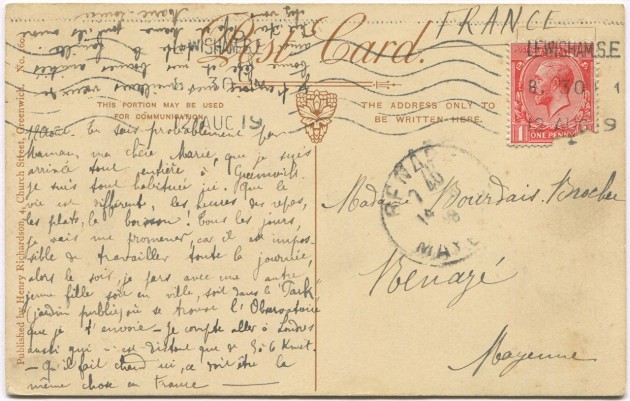 FRANCE
Post Card.
LEWISHAM S.E
8. 30
12 AUG 19
LEWISHAM S.E
12 AUG 19
ONE PENNY
THIS PORTION MAY BE USED
FOR COMMUNICATION.
THE ADDRESS ONLY TO
BE WRITTEN HERE.
Published by Henry Richardson, 4, Church Street, Greenwich. No. 660
12 Août. Tu sais probablement par
Maman, ma chère Marie, que je suis
arrivée tout entière à Greenwich.
Je suis tout habituée ici. Que la
vie est différent, les heures des repas,
les plats, la boisson! Tous les jours,
je vais me promener car il est impos-
sible de travailler toute la journée,
alors le soir, je pars avec une autre
jeune fille soit en ville, soit dans le "Park"
(jardin public) où se trouve l'Observatoire
que je t'envoie - Je compte aller à Londres
aussi qui n'est distant que de 5 à 6 Kmet.
- Qu'il fait chaud ici, ce doit être la
même chose en France
RENAZÉ
7 40
14
MAYENNE
Madame Bourdais-Brochu
Renazé
Mayenne